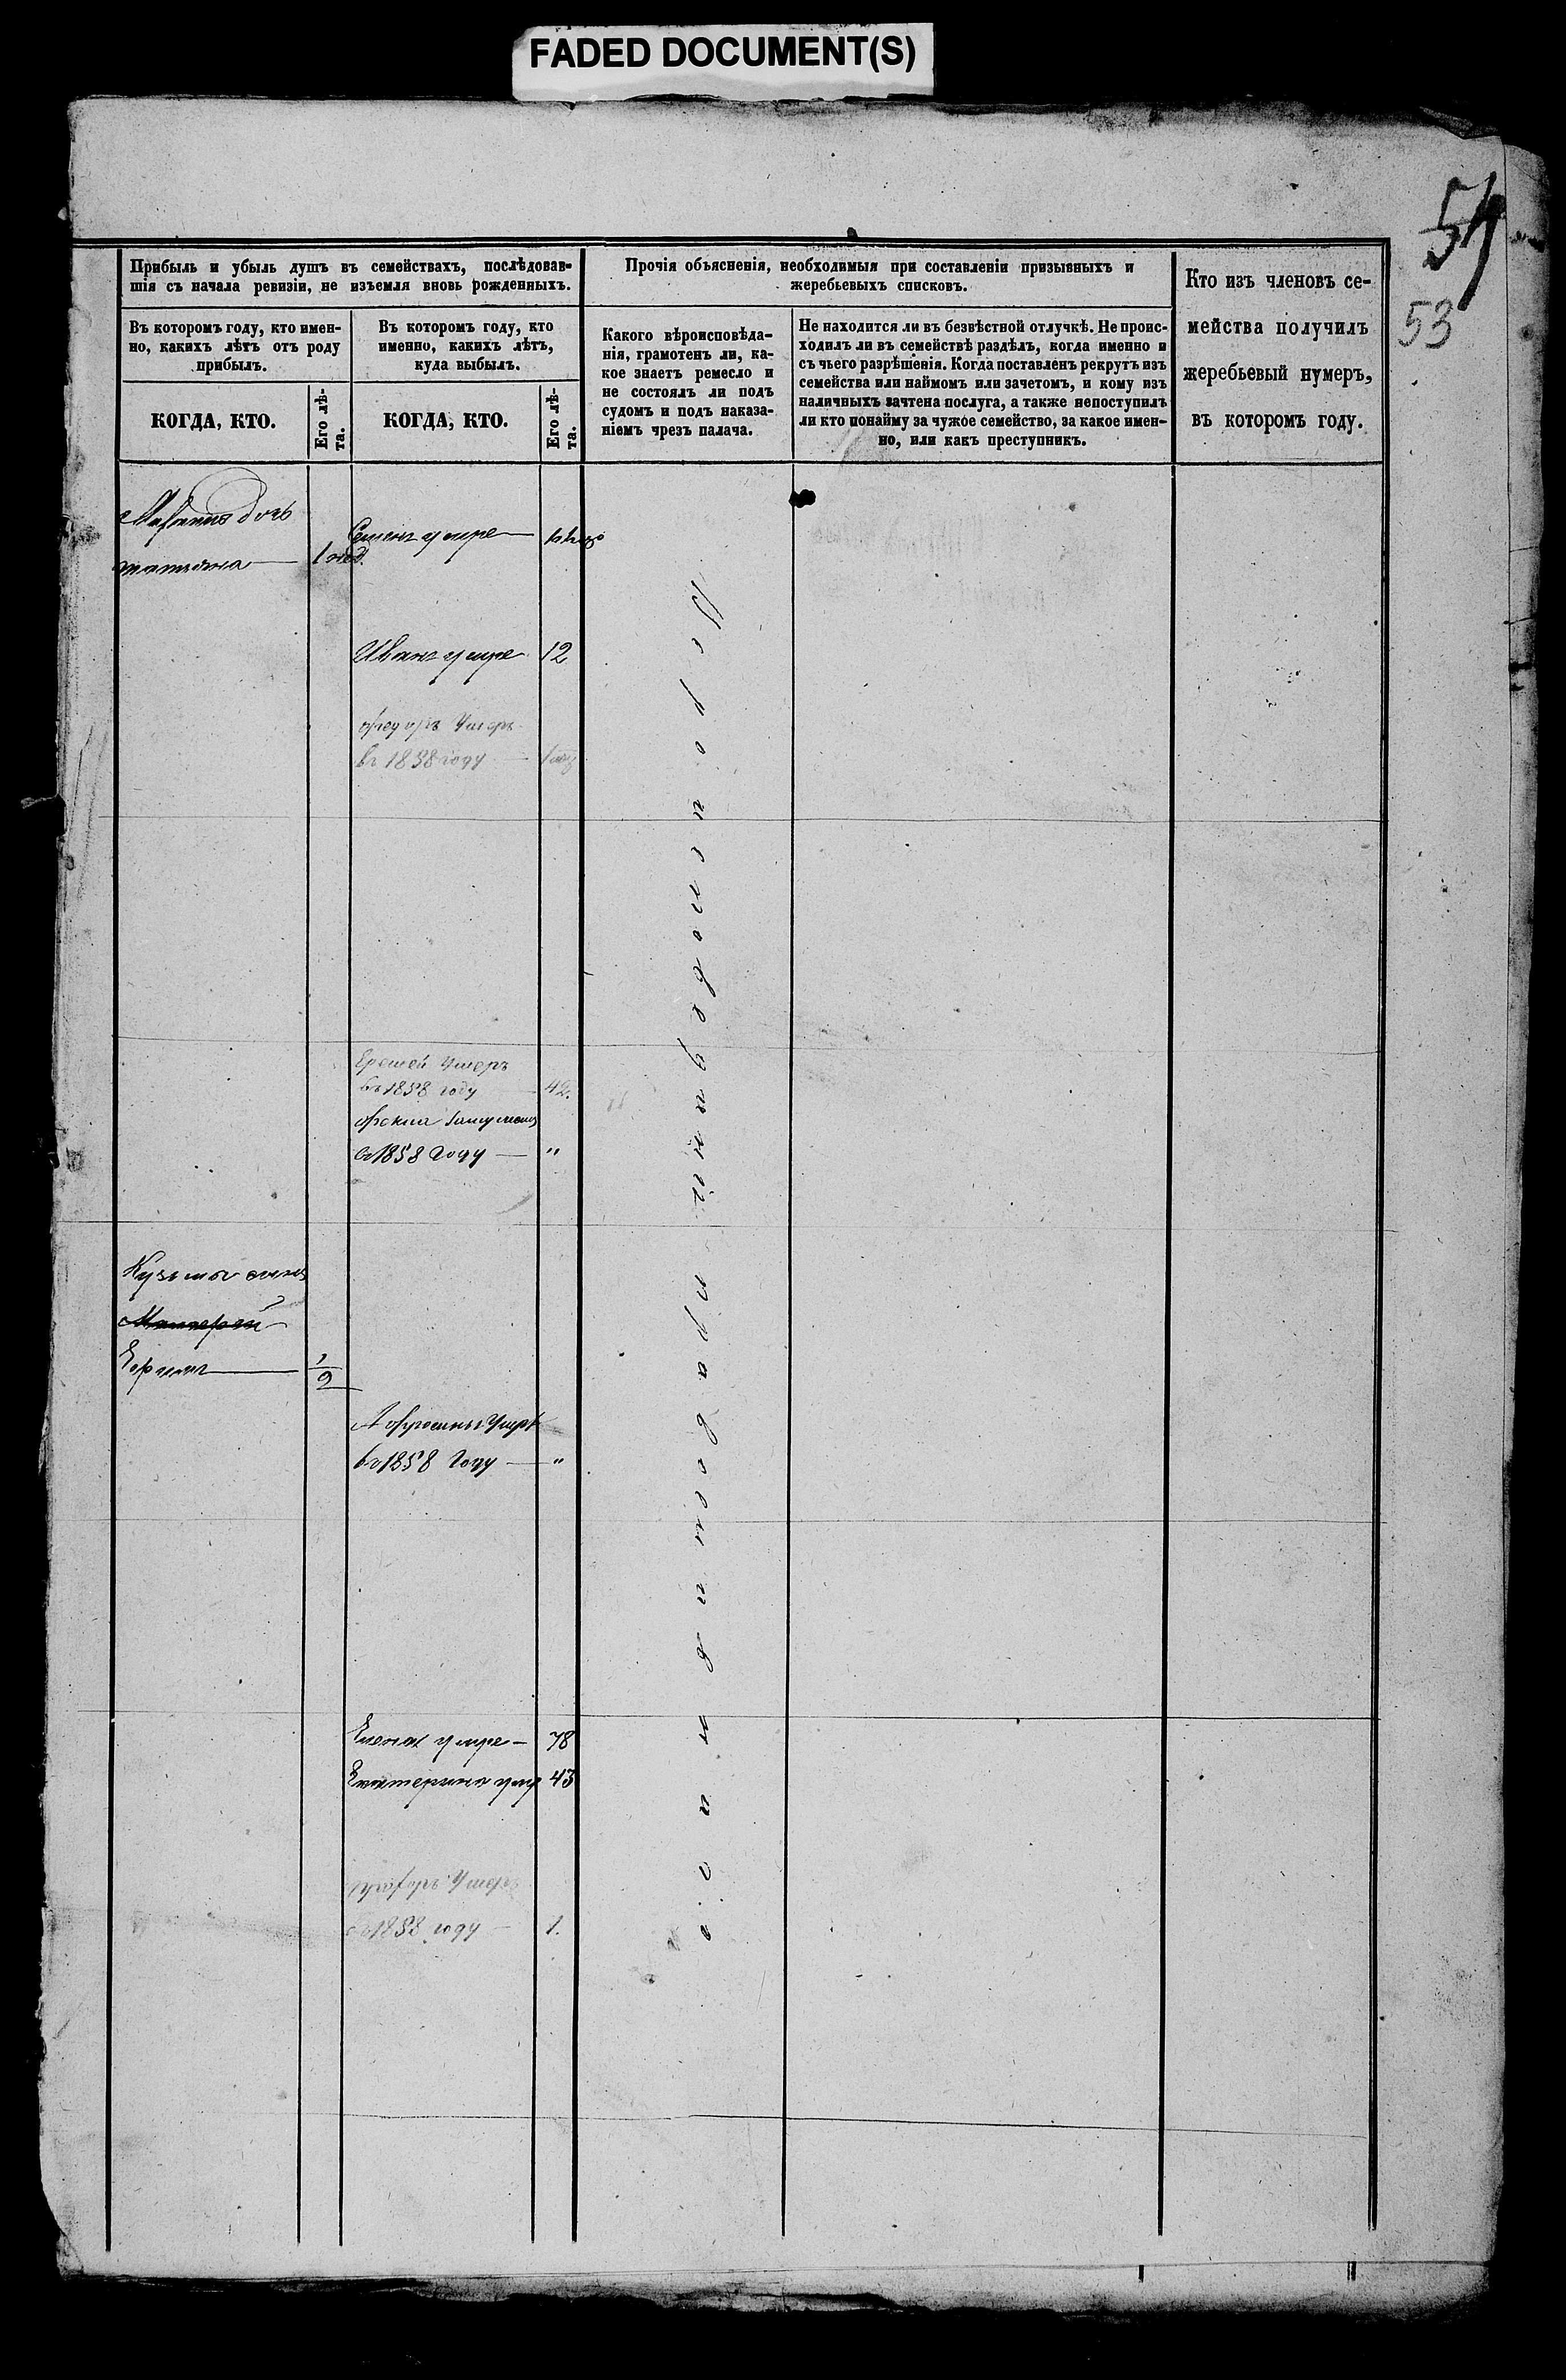 FADED DOCUMENT(S)
54
53
Прибыль и убыль душъ въ семействахъ, послѣдовав-
шія съ начала ревизіи, не изъемля вновь рожденныхъ.
Въ которомъ году, кто имен-
но, какихъ лѣтъ отъ роду
прибылъ.
КОГДА, КТО.
Его лѣ-
та.
Въ которомъ году, кто
именно, какихъ лѣтъ,
куда выбылъ.
КОГДА, КТО.
Его лѣ-
та.
Прочія объясненія, необходимыя при составленіи призывныхъ и
жеребьевыхъ списковъ.
Какого вѣроисповѣда-
нія, грамотенъ ли, ка-
кое знаетъ ремесло и
не состоялъ ли подъ
судомъ и подъ наказа-
ніемъ чрезъ палача.
Не находится ли въ безвѣстной отлучкѣ. Не проис-
ходилъ ли въ семействѣ раздѣлъ, когда именно и
съ чьего разрѣшенія. Когда поставленъ рекрутъ изъ
семейства или наймомъ или зачетомъ, и кому изъ
наличныхъ зачтена послуга, а также непоступилъ
ли кто понайму за чужое семейство, за какое имен-
но, или какъ преступникъ.
Кто изъ членовъ се-
мейства получилъ
жеребьевый нумеръ,
въ которомъ году.
дочь
1 нед.
Семенъ умре
Иванъ умре 12
Умеръ
въ 1858 году
Еремей Умеръ
въ 1858 году 42.
1858 году "
Кузьмы сынъ
Ефимъ
умре
въ 1858 году "
Елена умре 78
Екатерина умр 43
Умеръ
1858 году 1.